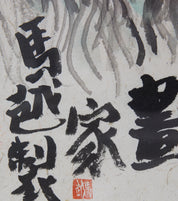 畫
家
馬越製